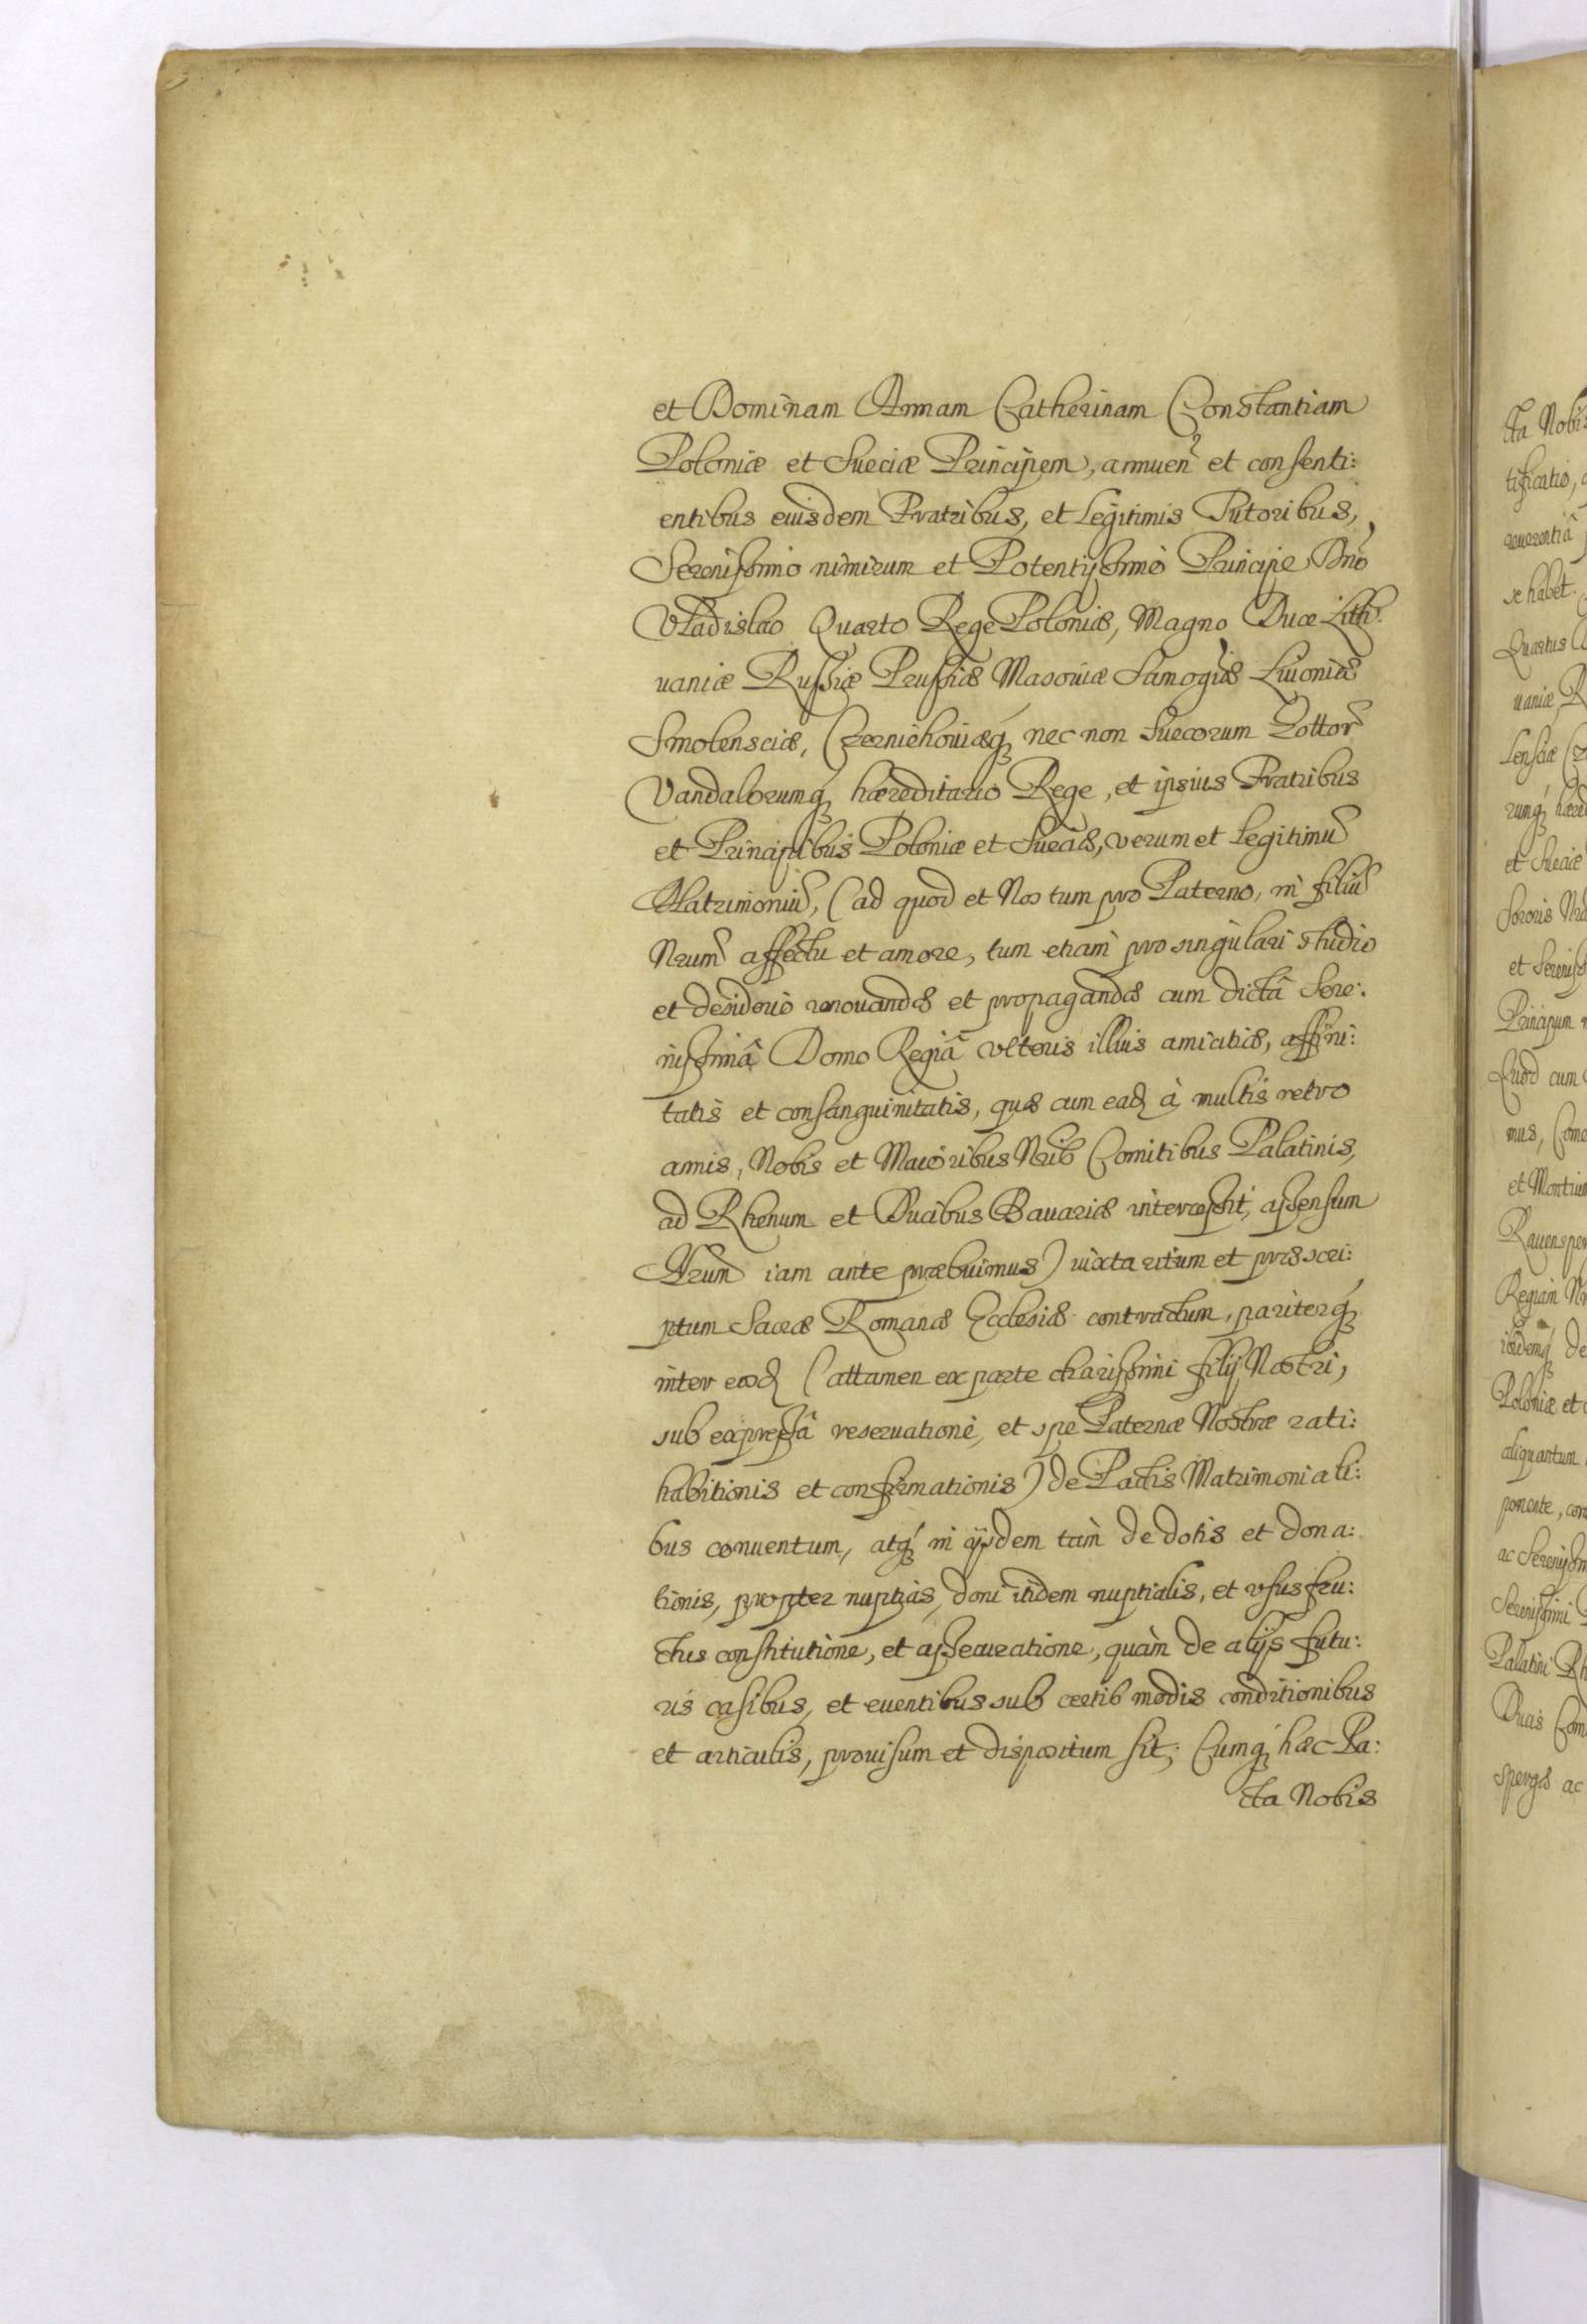 et Dominam Annam Catherinam Constantiam
Poloniæ et Sueciæ Principem, annuen: et consenti:
entibus eiusdem Fratribus, et Legitimis Tutoribus,
Serenissimo nimirum et Potentissimo Principe Dno
Vladislao Quarto Rege Poloniæ, Magno Duce Lith:
uaniæ Russiæ Prussiæ Masouiæ Samogiæ Liuoniæ
Smolensciæ, Czerniehouiæq́ nec non Suecorum Gottor
Vandalorumq́ hæreditario Rege, et ipsius Fratribus
et Principibus Poloniæ et Sueciæ, verum et Legitimu
Matrimoniu, (ad quod et Nos tum pro Paterno, in filiu
Nrum affectu et amore, tum etiam pro singulari studio
et desiderio renouandæ et propagandæ cum dictâ Sere:
nissimâ Domo Regiâ veteris illius amicitiæ, affini:
tatis et consanguinitatis, quæ cum ead à multis retro
annis, Nobis et Maioribus Nrib Comitibus Palatinis,
ad Rhenum et Ducibus Bauariæ intercessit, assensum
Nrum iam ante præbuimus) iuxta ritum et præscri:
ptum Sacræ Romanæ Ecclesiæ contractum, pariterq́
inter eosd (attamen ex parte charissimi filij Nostri,
sub expressâ reseruatione, et spe Paternæ Nostræ rati:
habitionis et confirmationis) de Pactis Matrimoniali:
bus conuentum, atq́ in ijsdem tam de dotis et dona:
tionis, propter nuptias, doni itidem nuptialis, et vsusfru:
ctus constitutione, et assecuratione, quàm de alijs futu:
ris casibus, et euentibus sub certis modis conditionibus
et articulis, prouisum et dispositum sit; Cumq́ hæc Pa:
cta Nobis
cta Nobis
tificatio,
reuerentiâ
se habet.
Quartus
uaniæ,
lensciæ
rumq́
et Sueciæ
Sororis
et
Principum
Quod cum
mus,
et Montium
Rauensper
Regiam
ibidemq́ de
Poloniæ et
aliquantum
ponente,
ac
Serenissimi
Palatini
Ducis Com
spergæ ac